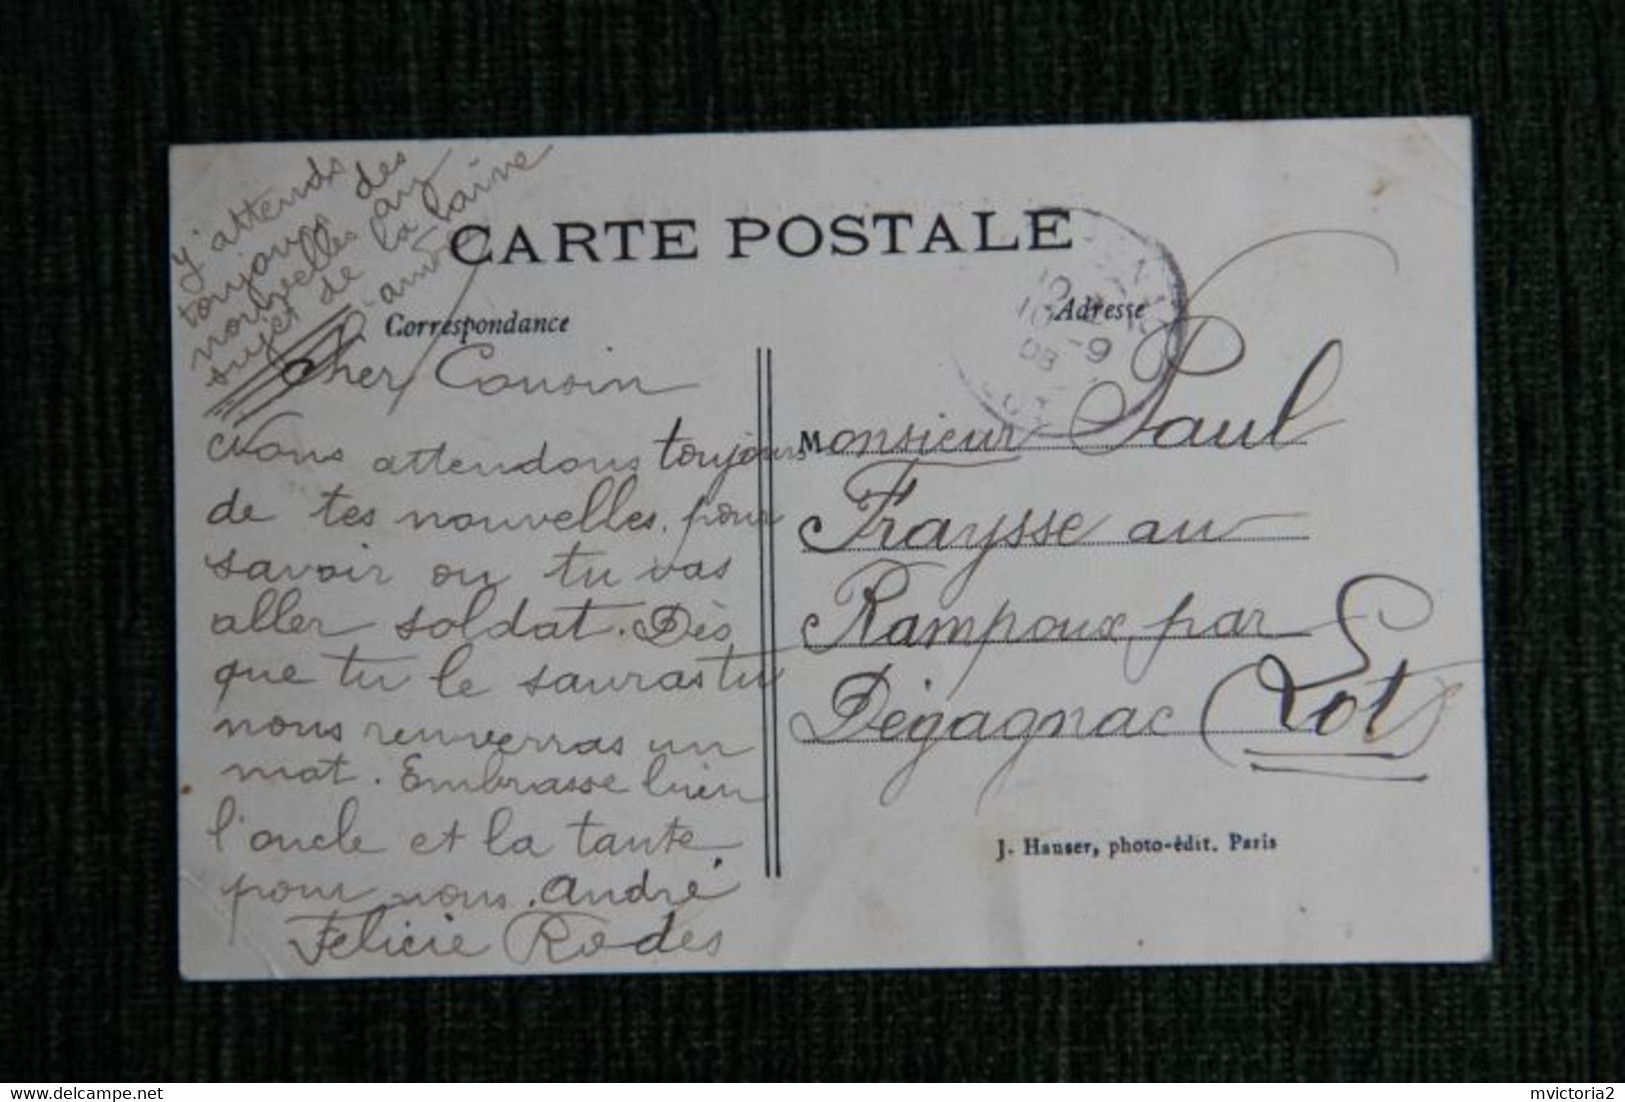 j'attends
toujours des
nouvelles au
sujet de la laine
CARTE POSTALE
Correspondance
Adresse
Cher Cousin
Nous attendons toujours
de tes nouvelles pour
savoir ou tu vas
aller soldat. Dès
que tu le sauras tu
nous renverras un
mot. Embrasse bien
l'oncle et la tante
pour nous. André
Felicie Rodes
Monsieur Paul
Fraysse au
Rampoux par
Dégagnac (Lot)
J. Hauser, photo-édit. Paris
mvictoria2